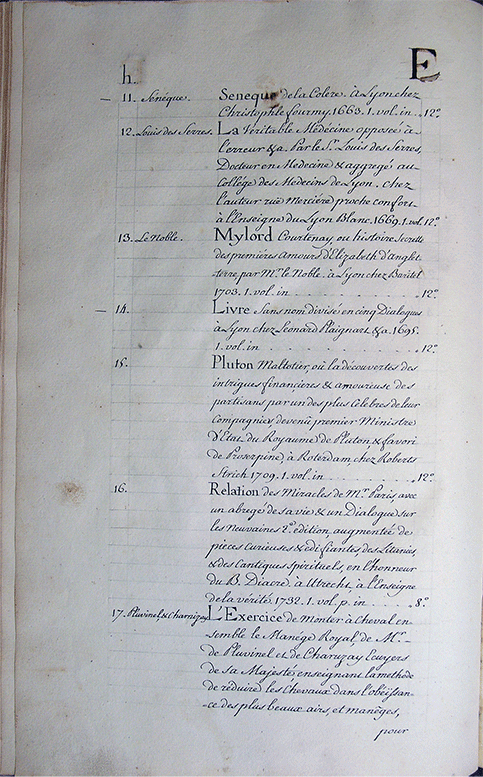 E
h.
11. Sénéque. Seneque de la Colere. à Lyon chez
Christophle fourmy. 1663. 1. vol. in .. 12º
12. Louis des Serres. La Véritable Médécine opposée à
l'erreur &a. Par le Sr. Louis des Serres,
Docteur en Medecine & aggregé au
Collége des Medecins de Lyon. chez
l'auteur ruë Merciere proche confort
à l'Enseigne du Lyon Blanc. 1669. 1. vol. 12º
13. Le Noble. Mylord Courtenay, ou histoire Secrette
des premieres amours d'Elizabeth d'Anglet
terre, par Mr. le Noble. à Lyon chez Baritel
1703. 1. vol. in . . . . . . . . 12º
14. Livre Sans nom divisé en cinq Dialogues
à Lyon chez Leonard Plaignart &a. 1695.
1. vol. in . . . . . . . . 12º
15. Pluton Maltotier, où la découvertes des
intrigues financieres & amoureuse des
partisans par un des plus Célebres de leur
Compagnie, devenû premier Ministre
d'Etat du Royaume de Pluton, & favori
de Proserpine, à Roterdam, chez Roberts
Strich 1709. 1. vol. in . . . . . . 12º
16. Relation des Miracles de Mr. Paris, avec
un abregé de sa vie & un Dialogue sur
les Neuvaines 2º edition, augmentée de
pieces Curieuses & edifiantes des Litanies,
& des Cantiques Spirituels, en l'honneur
du B. Diacre. à Utrecht, à l'Enseigne
de la vérité. 1732. 1. vol. p. in . . . . 8º
17. Pluvinel, & Charnizay. L'Exercice de Monter à Cheval en-
-semble le Manége Royal, de Mr.
de Pluvinel et de Charnizay Ecuyers
de sa Majesté enseignant la methode
de réduire les Chevaux dans l'obéissan-
-ce des plus beaux airs, et manéges,
pour